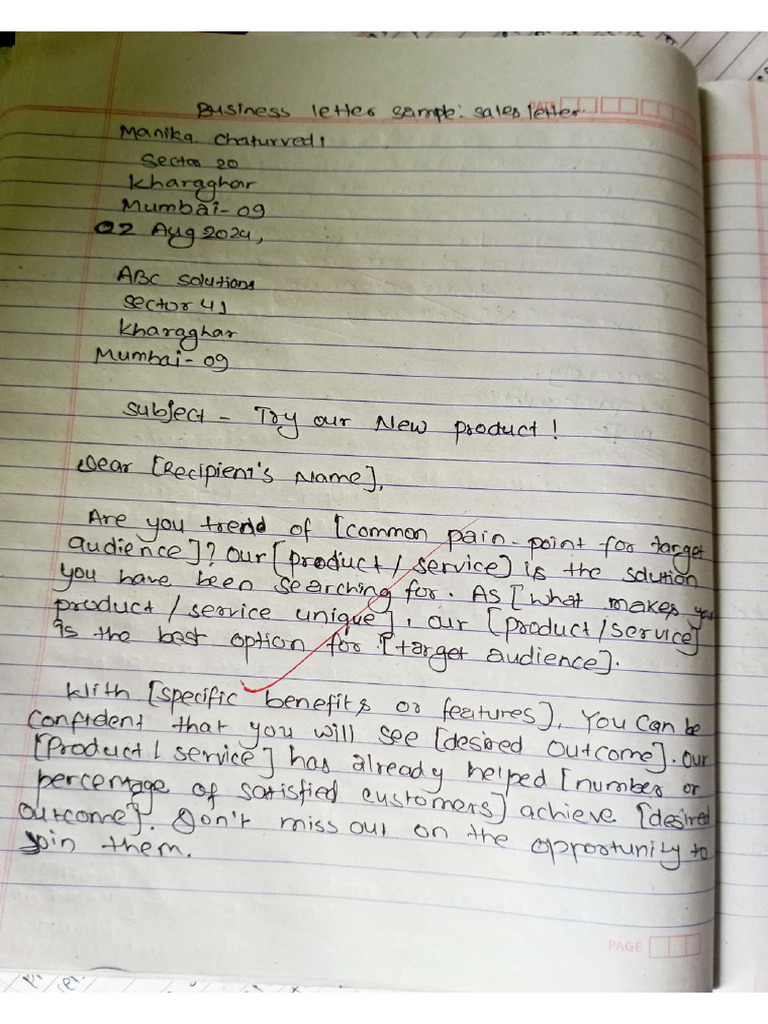 Business letter sample: sales letter
DATE
Manika Chaturvedi
Sector 20
Kharaghar
Mumbai-09
02 Aug 2024,
ABC Solutions
Sector 41
Kharaghar
Mumbai-09
Subject - Try our New product!
Dear [Recipient's Name],
Are you trend of [common pain-point for target
audience]? Our [product / service] is the solution
you have been searching for. As [what makes you
product / service unique], our [product / service]
is the best option for [target audience].
With [specific benefits or features], You can be
confident that you will see [desired outcome]. Our
[Product / service] has already helped [number or
percentage of satisfied customers] achieve [desired
outcome]. Don't miss out on the opportunity to
join them.
PAGE